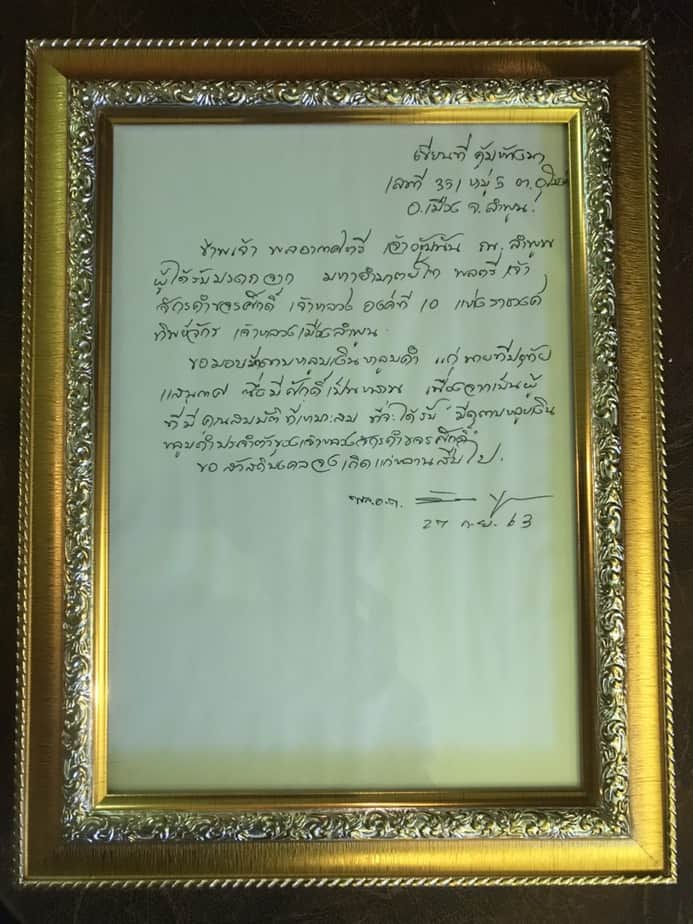 เขียนที่ คุ้ม
เลขที่ 351 หมู่ 5 ต.
อ.เมือง จ.ลำพูน.
ข้าพเจ้า พลอากาศตรี เจ้าวัฒนัน ณ ลำพูน
ผู้ได้รับมรดกจาก มหาอำมาตย์โท พลตรี เจ้า
จักรคำขจรศักดิ์ เจ้าหลวง องค์ที่ 10 แห่งราชวงศ์
ทิพย์จักร เจ้าหลวงเมืองลำพูน
ขอมอบ เงิน คำ แก่ นาย
ซึ่งมีศักดิ์เป็นหลาน เนื่องจากเป็นผู้
ที่มีคุณสมบัติที่เหมาะสม ที่จะได้รับ
ประจำตัวของเจ้าหลวงจักรคำขจรศักดิ์
ขอสวัสดิมงคลจงเกิดแก่หลานสืบไป.
พล.อ.ต.
27 ก.ย. 63